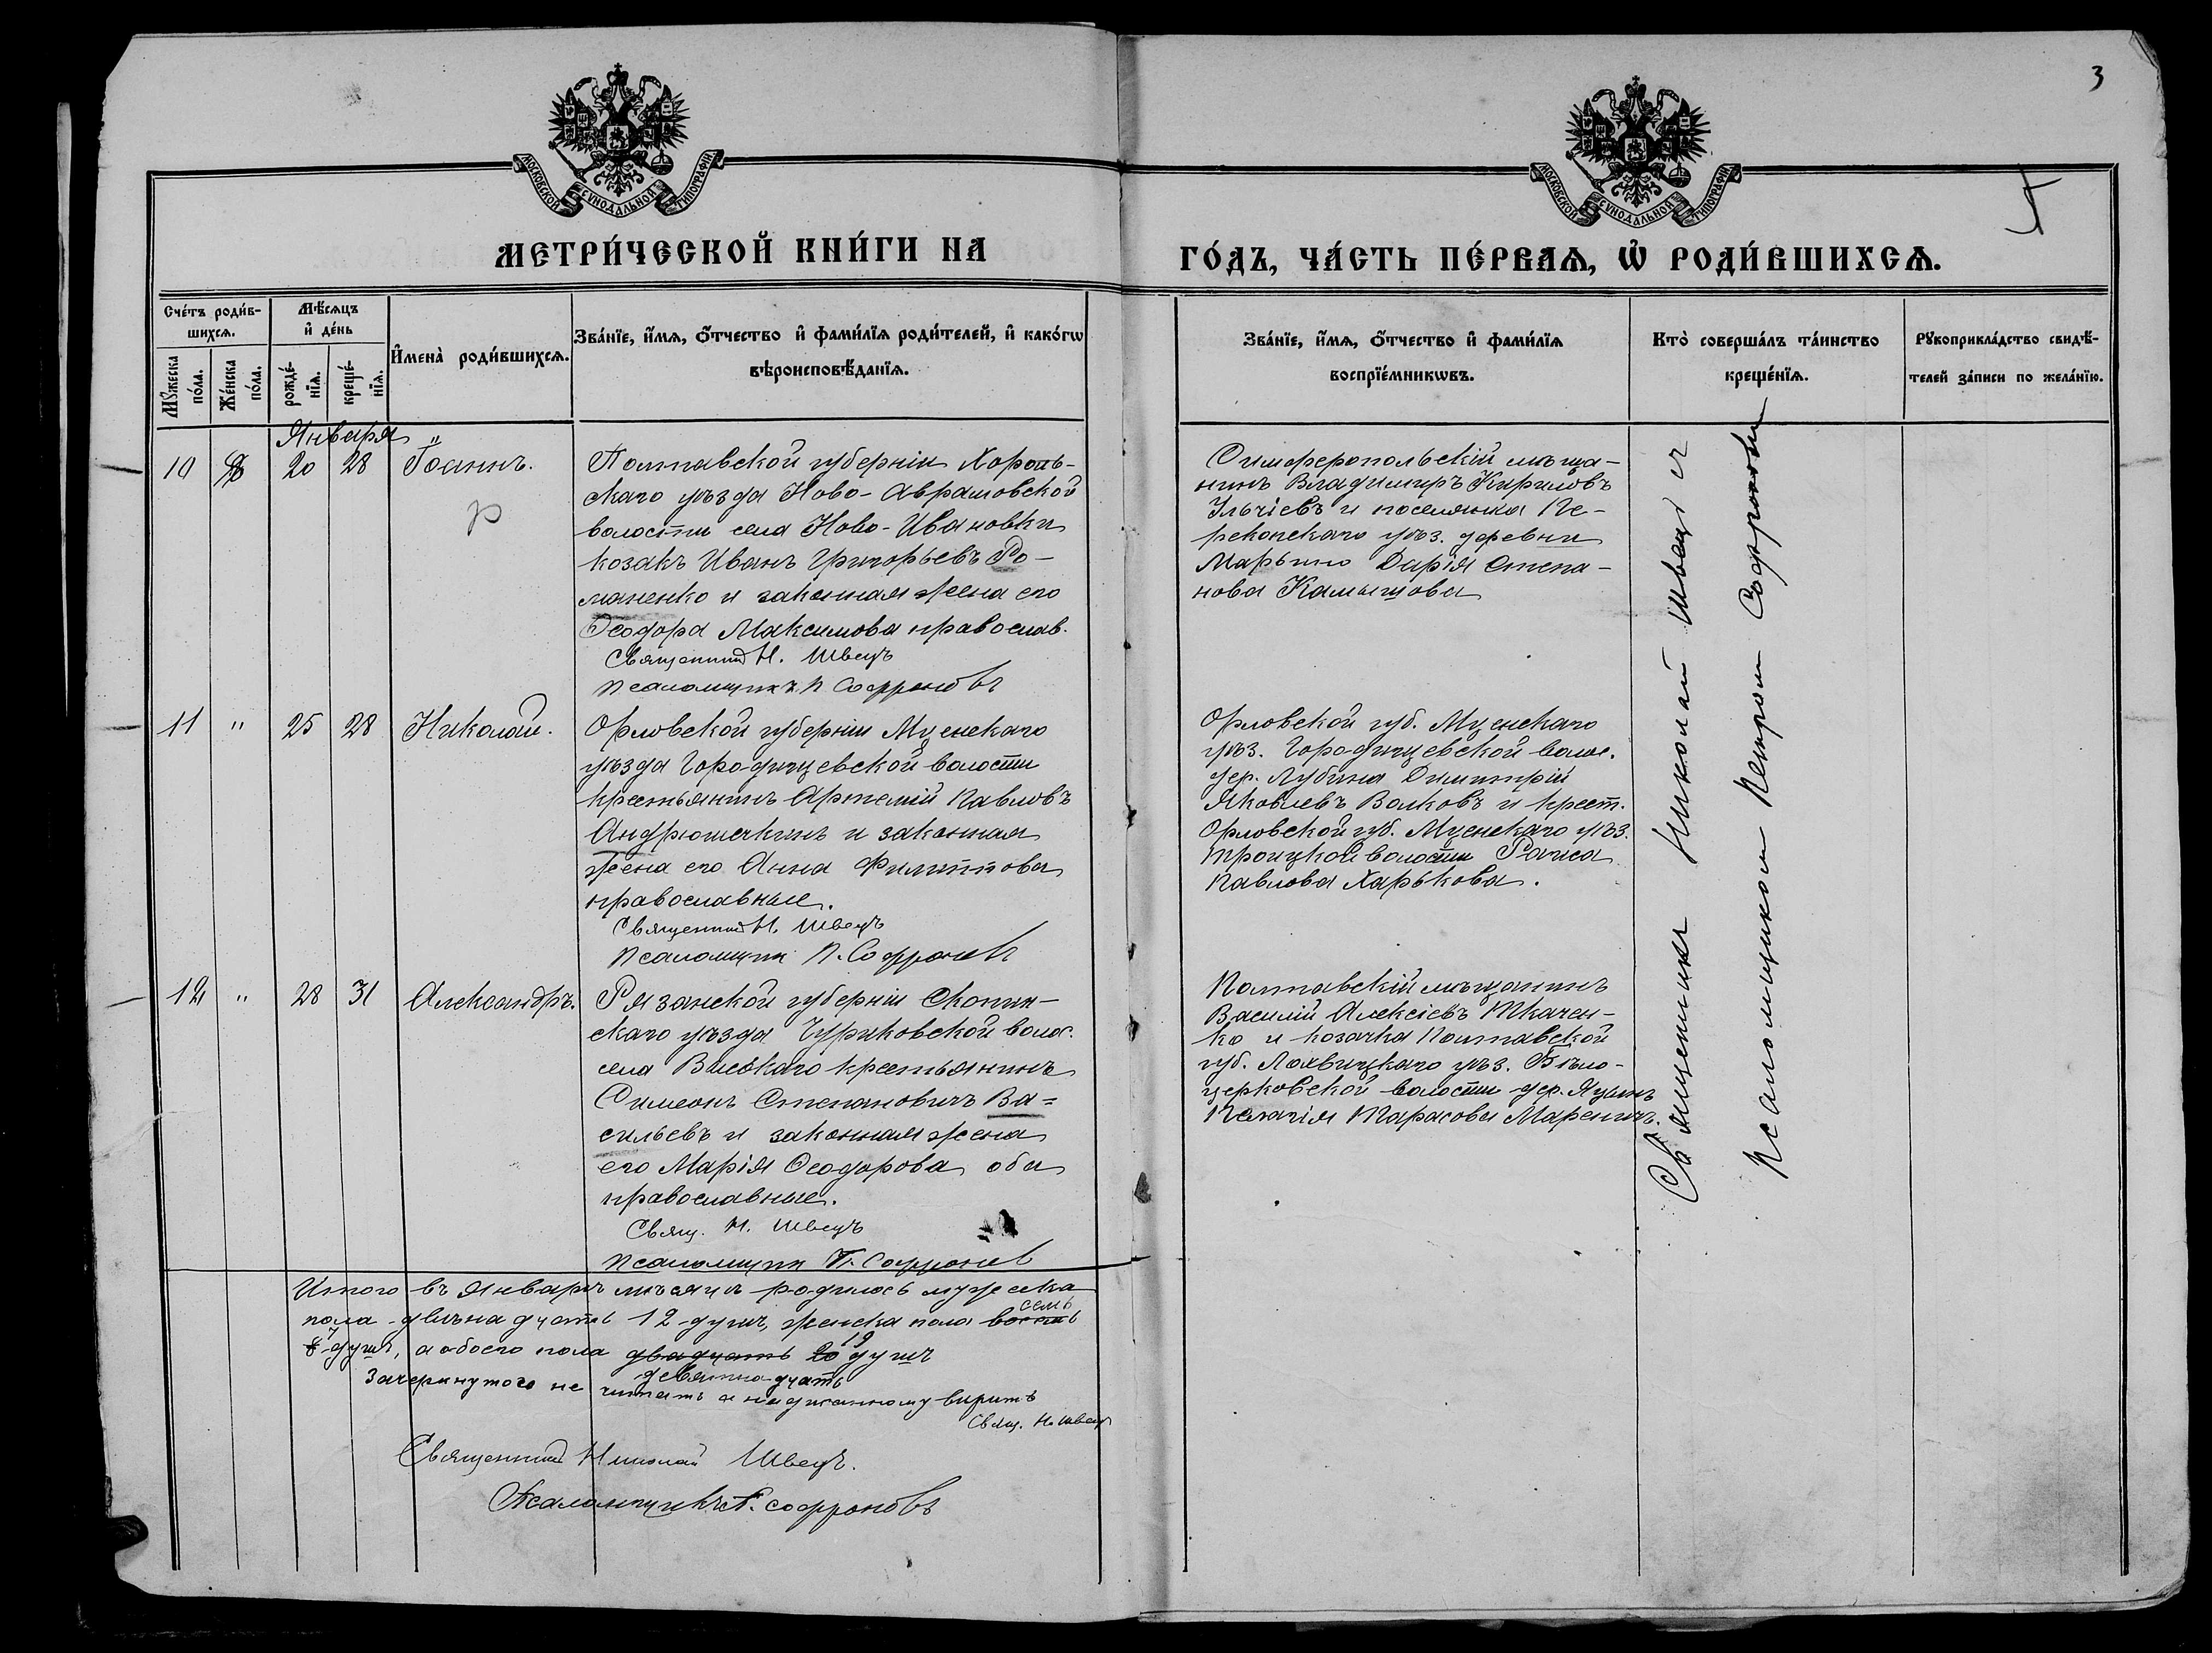 3
МОСКОВСКОЙ СѴНОДАЛЬНОЙ ТИПОГРАФІИ
МОСКОВСКОЙ СѴНОДАЛЬНОЙ ТИПОГРАФІИ
МЕТРИ́ЧЕСКОЙ КНИ́ГИ НА
ГО́ДЪ, ЧА́СТЬ ПЕ́РВАѦ, Ѡ҆ РОДИ́ВШИХСѦ.
Сче́тъ роди́в-
шихсѧ.
Мѣ́сѧцъ
и҆ де́нь
И҆мена̀ роди́вшихсѧ.
Зва́нїе, и҆́мѧ, ѻ҆́тчество и҆ фами́лїѧ роди́телей, и҆ како́гѡ
вѣроисповѣ́данїѧ.
Мꙋ́жеска
по́ла.
Же́нска
по́ла.
рожде́-
нїѧ.
креще́-
нїѧ.
Зва́нїе, и҆́мѧ, ѻ҆́тчество и҆ фами́лїѧ
воспрїе́мникѡвъ.
Кто̀ соверша́лъ та́инство
креще́нїѧ.
Рꙋкоприкла́дство свидѣ́-
телей за́писи по жела́нїю.
Января
10 20 28 Іоаннъ.
Полтавской губерніи Хороль-
скаго уѣзда Ново-Аврамовской
волости села Ново-Ивановки
козакъ Иванъ Григорьевъ Ро-
маненко и законная жена его
Ѳеодора Максимова православ.
Священникъ Н. Швецъ
Псаломщикъ П. Софроновъ
Симферопольскій мѣща-
нинъ Владимиръ Кириловъ
Ульчіевъ и поселянка Пе-
рекопскаго уѣз. деревни
Марьино Дарія Степа-
нова Камышова
11 " 25 28 Николай.
Орловской губерніи Мценскаго
уѣзда Городищевской волости
крестьянинъ Артемій Павловъ
Андрюшечкинъ и законная
жена его Анна Филиппова
православные.
Священникъ Н. Швецъ
Псаломщикъ П. Софроновъ
Орловской губ. Мценскаго
уѣз. Городищевской волос.
дер. Лубина Димитрій
Яковлевъ Волковъ и крест.
Орловской губ. Мценскаго уѣз.
Троицкой волости Раиса
Павлова Харькова.
12 " 28 31 Александръ.
Рязанской губерніи Скопин-
скаго уѣзда Чуриковской волос.
села крестьянинъ
Симеонъ Степановичъ Ва=
сильевъ и законная жена
его Марія Ѳеодорова, оба
православные.
Свящ. Н. Швецъ
Псаломщикъ П. Софроновъ
Полтавскій мѣщанинъ
Василій Алексіевъ Ткачен-
ко и козачка Полтавской
губ. Лохвицкаго уѣз. Бѣло-
церковской волости дер. Яцинъ
Пелагія Тарасова Мареничъ.
Священникъ Николай Швецъ съ
Псаломщикомъ Петромъ Софроновымъ
Итого въ Январѣ мѣсяцѣ родилось мужеска
пола двѣнадцать 12 душъ, женска пола восемь семь
8 7 душъ, а обоего пола двадцать 20 19 душъ
девятнадцать
Зачеркнутого не читать а надписанному вѣрить
Свящ. Н. Швецъ
Священникъ Николай Швецъ.
Псаломщикъ П. Софроновъ